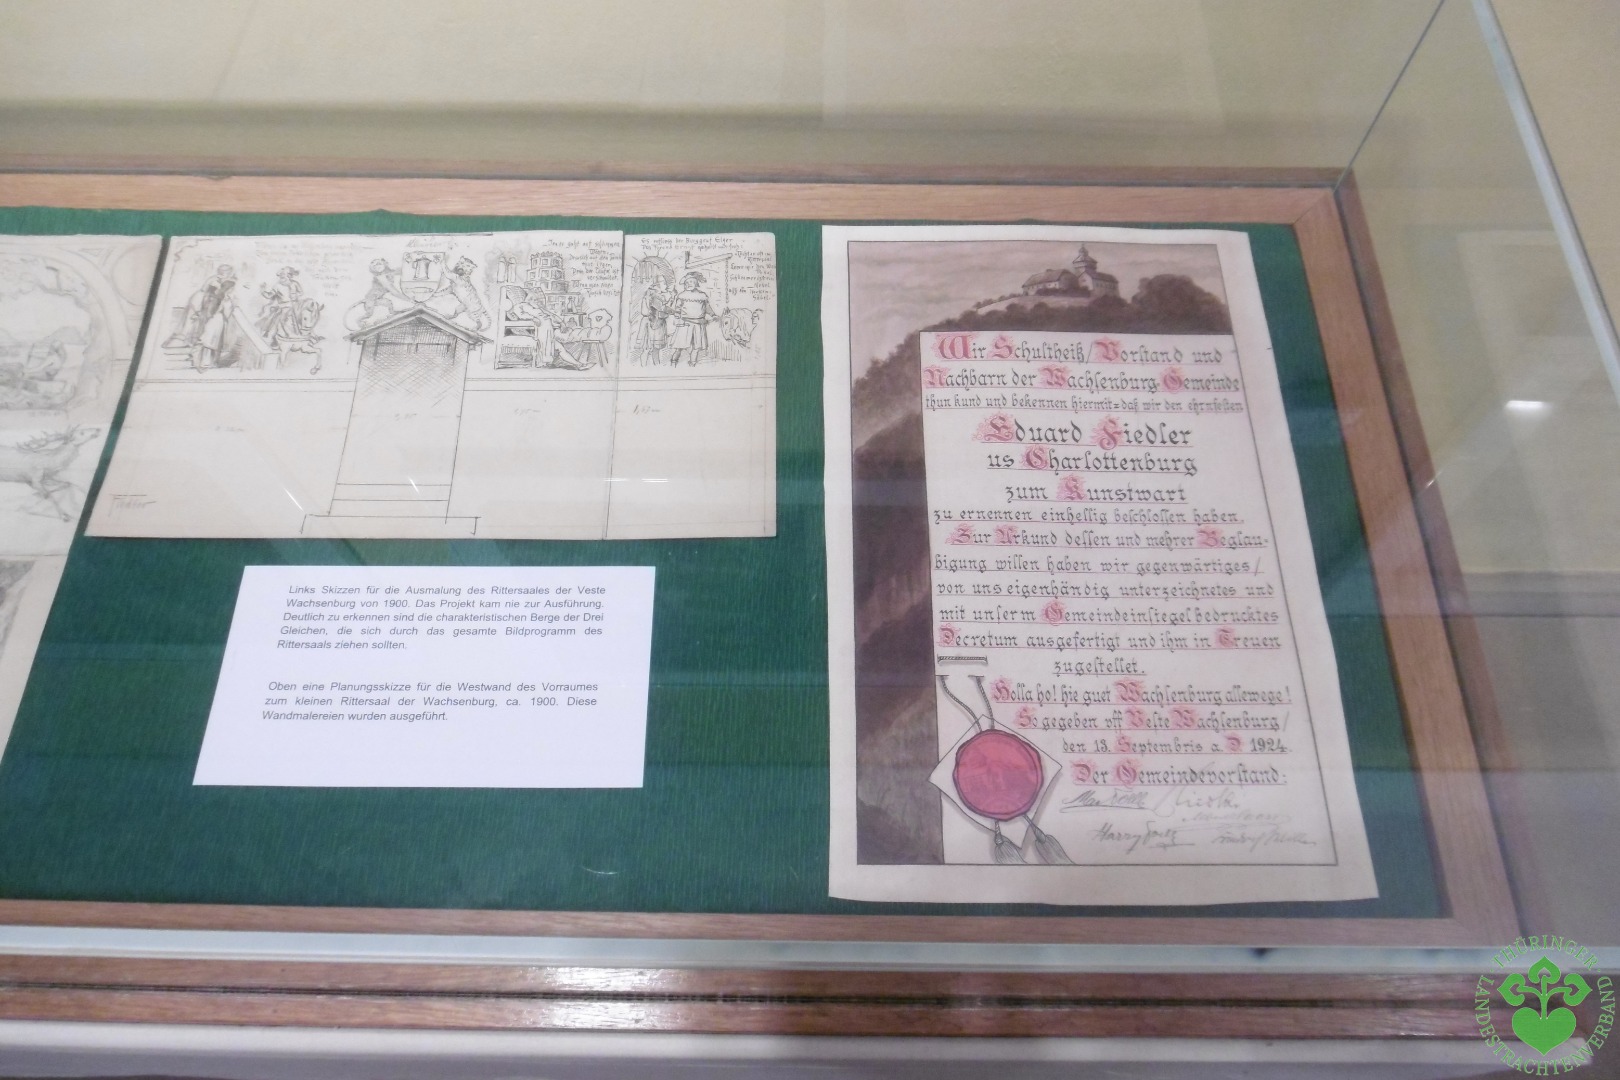 Fiedler
Links Skizzen für die Ausmalung des Rittersaales der Veste
Wachsenburg von 1900. Das Projekt kam nie zur Ausführung.
Deutlich zu erkennen sind die charakteristischen Berge der Drei
Gleichen, die sich durch das gesamte Bildprogramm des
Rittersaals ziehen sollten.
Oben eine Planungsskizze für die Westwand des Vorraumes
zum kleinen Rittersaal der Wachsenburg, ca. 1900. Diese
Wandmalereien wurden ausgeführt.
Wir Schultheiß/Vorstand und
Nachbarn der Wachsenburg Gemeinde
thun kund und bekennen hiermit=daß wir den ehrnfesten
Eduard Fiedler
us Charlottenburg
zum Kunstwart
zu ernennen einhellig beschlossen haben.
Zur Urkund dessen und mehrer Beglau-
bigung willen haben wir gegenwärtiges/
von uns eigenhändig unterzeichnetes und
mit unserm Gemeindeinsiegel bedrucktes
Decretum ausgefertigt und ihm in Treuen
zugestellet.
Holla ho! hie guet Wachsenburg allewege!
So gegeben vff Veste Wachsenburg/
den 13. Septembris a. D 1924.
Der Gemeindevorstand:
THÜRINGER
LANDESTRACHTENVERBAND